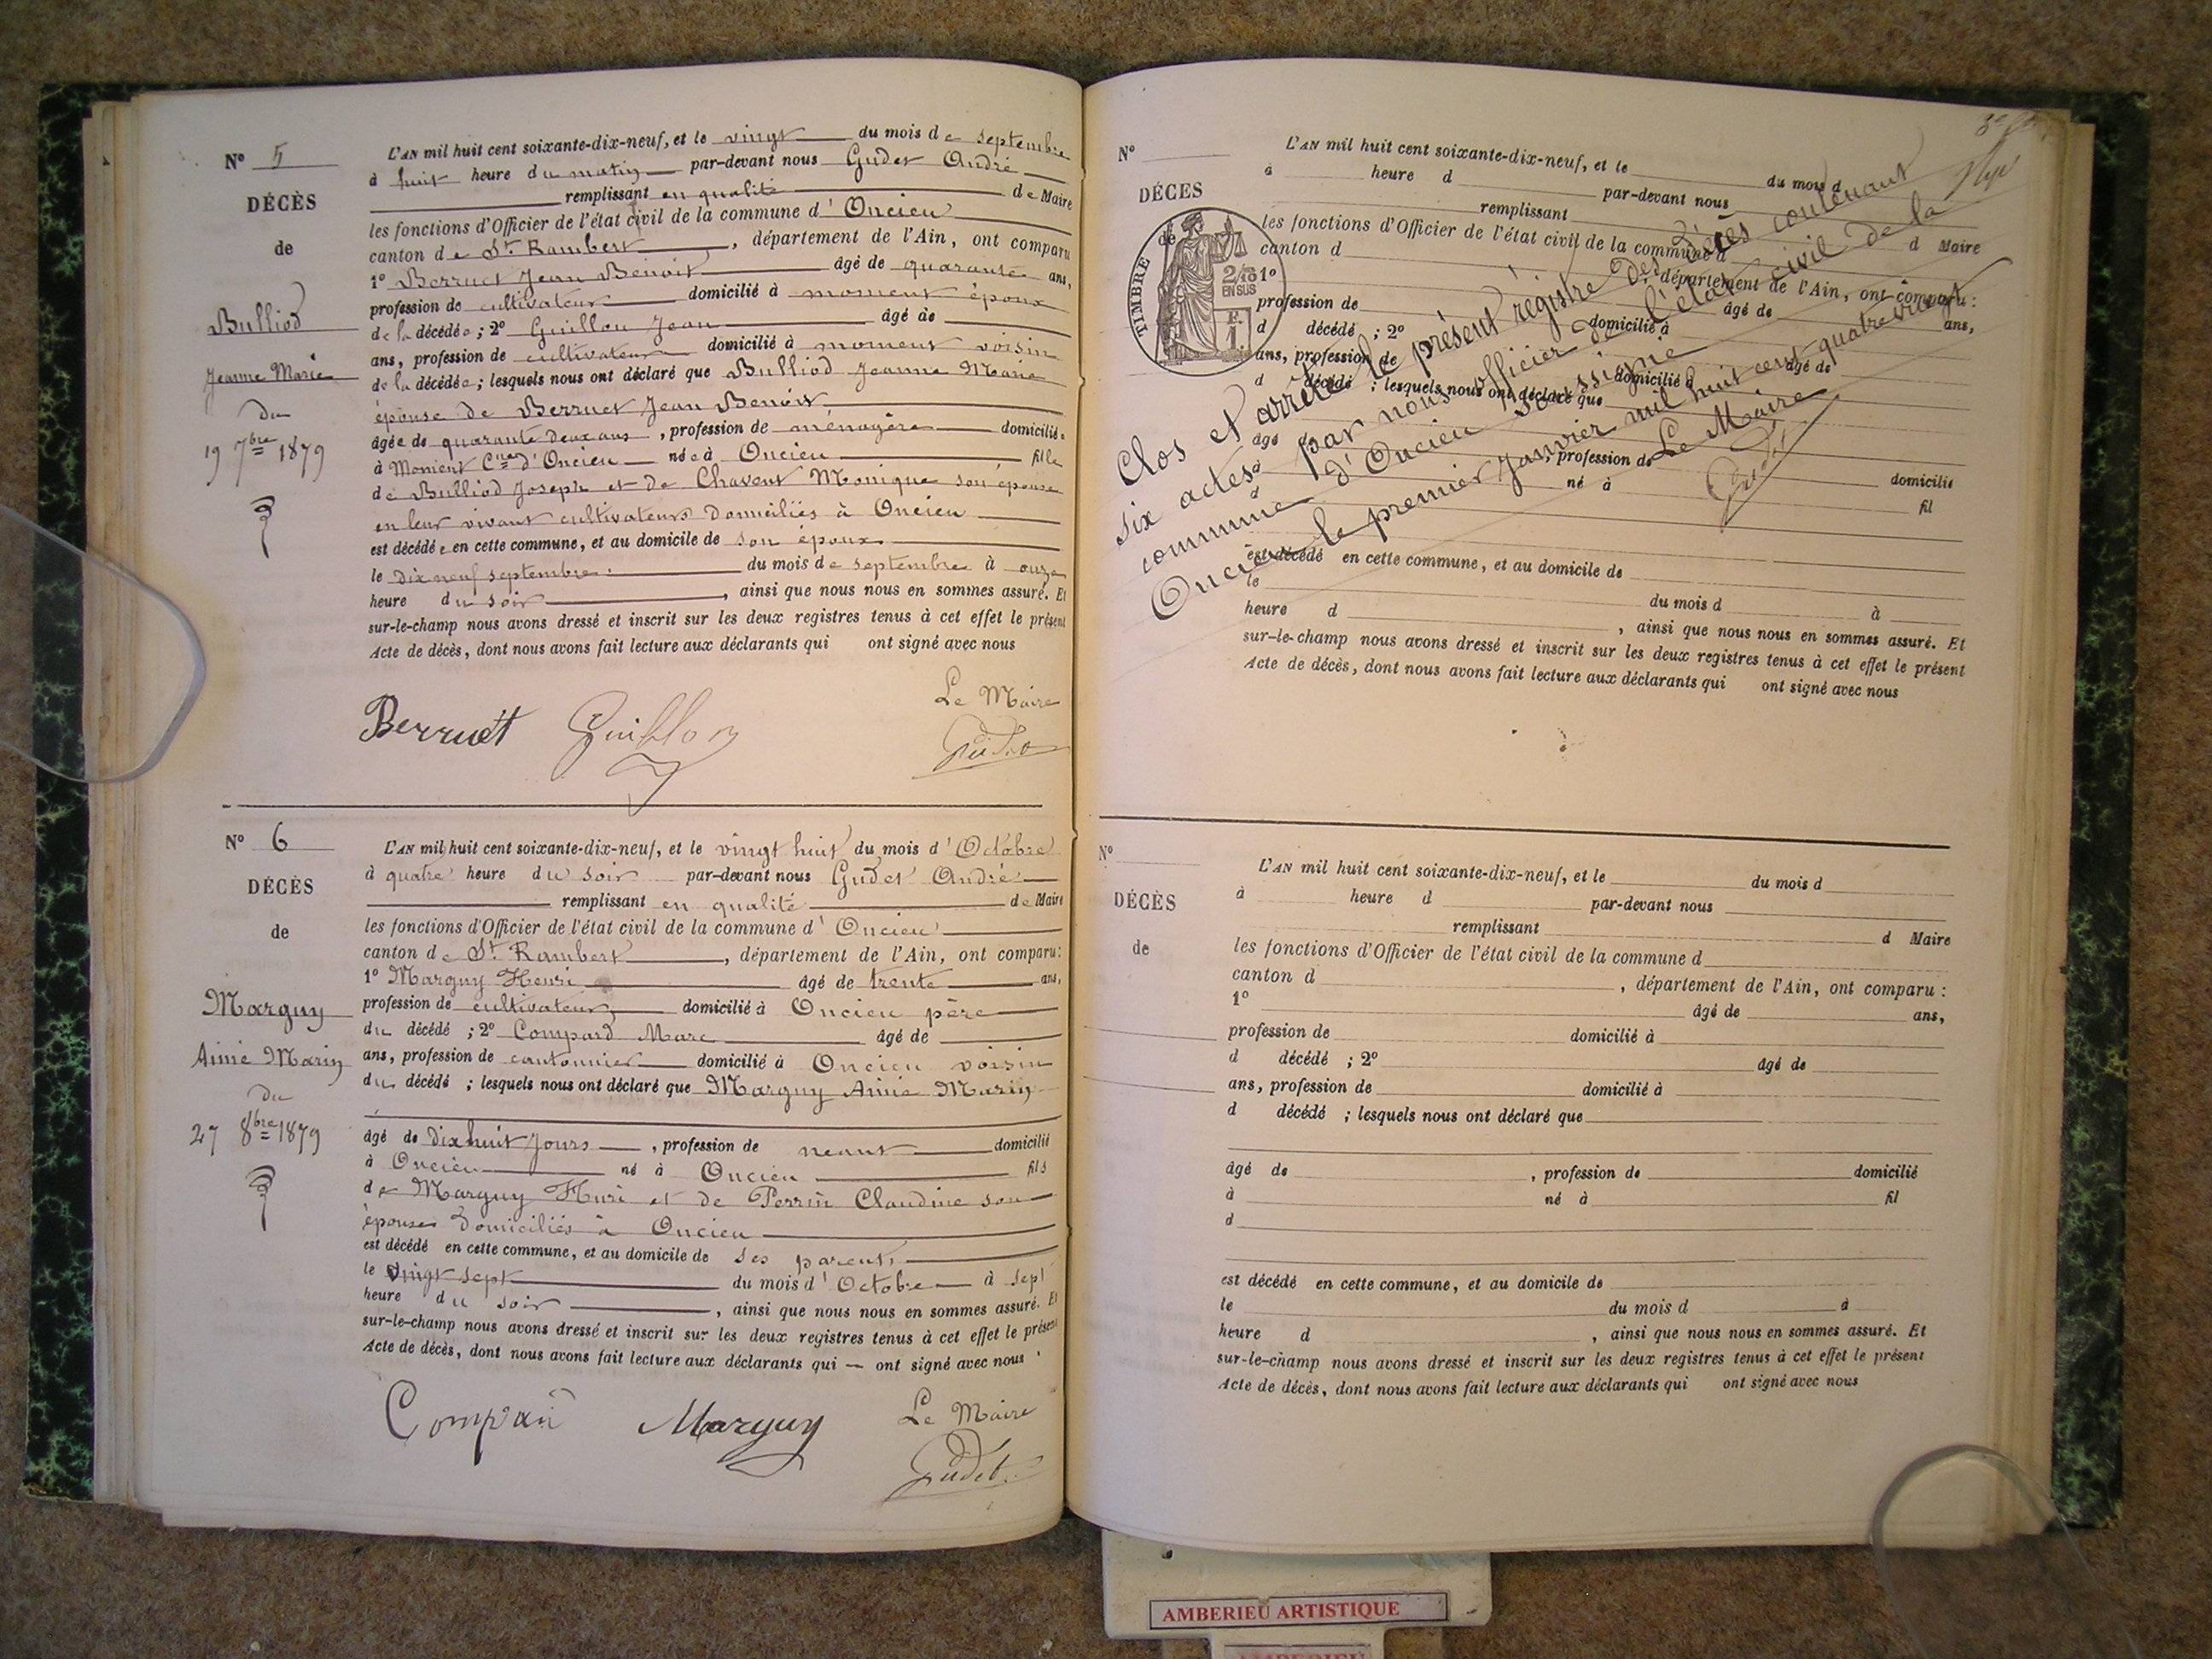 N° 5
DÉCÈS
de
Bulliod
Jeanne Marie
du
19 7bre 1879
L'AN mil huit cent soixante-dix-neuf, et le vingt du mois de septembre
à huit heure du matin par-devant nous Gudet André
remplissant en qualité de Maire
les fonctions d'Officier de l'état civil de la commune d'Oncieu
canton de St Rambert, département de l'Ain, ont comparu
1° Berruet Jean Benoit âgé de quarante ans,
profession de cultivateur domicilié à moment époux
de la décédée ; 2° Guillon Jean âgé de
ans, profession de cultivateur domicilié à moment voisin
de la décédée ; lesquels nous ont déclaré que Bulliod Jeanne Marie
épouse de Berruet Jean Benoit
âgée de quarante deux ans, profession de ménagère domiciliée
à Moment Cne d'Oncieu née à Oncieu fille
de Bulliod Joseph et de Chavent Monique son épouse
en leur vivant cultivateurs domiciliés à Oncieu
est décédée en cette commune, et au domicile de son époux
le dix neuf septembre du mois de septembre à onze
heure du soir, ainsi que nous nous en sommes assuré. Et
sur-le-champ nous avons dressé et inscrit sur les deux registres tenus à cet effet le présent
Acte de décès, dont nous avons fait lecture aux déclarants qui ont signé avec nous
Le Maire
Berruét Guillon Gudet
N° 6
DÉCÈS
de
Marguy
Aimé Marin
du
27 8bre 1879
L'AN mil huit cent soixante-dix-neuf, et le vingt huit du mois d'Octobre
à quatre heure du soir par-devant nous Gudet André
remplissant en qualité de Maire
les fonctions d'Officier de l'état civil de la commune d'Oncieu
canton de St Rambert, département de l'Ain, ont comparu :
1° Marguy Henri âgé de trente ans,
profession de cultivateur domicilié à Oncieu père
du décédé ; 2° Compard Marc âgé de
ans, profession de cantonnier domicilié à Oncieu voisin
du décédé ; lesquels nous ont déclaré que Marguy Aimé Marin
âgé de dix huit jours, profession de neant domicilié
à Oncieu né à Oncieu fils
de Marguy Henri et de Perrin Claudine son
épouse domiciliés à Oncieu
est décédé en cette commune, et au domicile de ses parents
le vingt sept du mois d'Octobre à sept
heure du soir, ainsi que nous nous en sommes assuré. Et
sur-le-champ nous avons dressé et inscrit sur les deux registres tenus à cet effet le présent
Acte de décès, dont nous avons fait lecture aux déclarants qui — ont signé avec nous
Le Maire
Marguy Gudet
N°
DÉCÈS
de
TIMBRE
2/10
EN SUS
F.
1
L'AN mil huit cent soixante-dix-neuf, et le du mois d
à heure d par-devant nous
remplissant d Maire
les fonctions d'Officier de l'état civil de la commune d
canton d département de l'Ain, ont comparu :
1° âgé de ans,
profession de domicilié à
d décédé ; 2° âgé de
ans, profession de domicilié à
d décédé ; lesquels nous ont déclaré que
âgé d , profession de domicilié
à né à fil
d
est décédé en cette commune, et au domicile de
le du mois d à
heure d , ainsi que nous nous en sommes assuré. Et
sur-le-champ nous avons dressé et inscrit sur les deux registres tenus à cet effet le présent
Acte de décès, dont nous avons fait lecture aux déclarants qui ont signé avec nous
Clos et arrêté le présent registre des décès contenant
six actes par nous officier de l'état civil de la
commune d'Oncieu soussigné
Oncieu le premier Janvier mil huit cent quatre vingt
Le Maire
Gudet
N°
DÉCÈS
de
L'AN mil huit cent soixante-dix-neuf, et le du mois d
à heure d par-devant nous
remplissant d Maire
les fonctions d'Officier de l'état civil de la commune d
canton d , département de l'Ain, ont comparu :
1° âgé de ans,
profession de domicilié à
d décédé ; 2° âgé de
ans, profession de domicilié à
d décédé ; lesquels nous ont déclaré que
âgé de , profession de domicilié
à né à fil
d
est décédé en cette commune, et au domicile de
le du mois d à
heure d , ainsi que nous nous en sommes assuré. Et
sur-le-champ nous avons dressé et inscrit sur les deux registres tenus à cet effet le présent
Acte de décès, dont nous avons fait lecture aux déclarants qui ont signé avec nous
AMBERIEU ARTISTIQUE
AMBERIEU